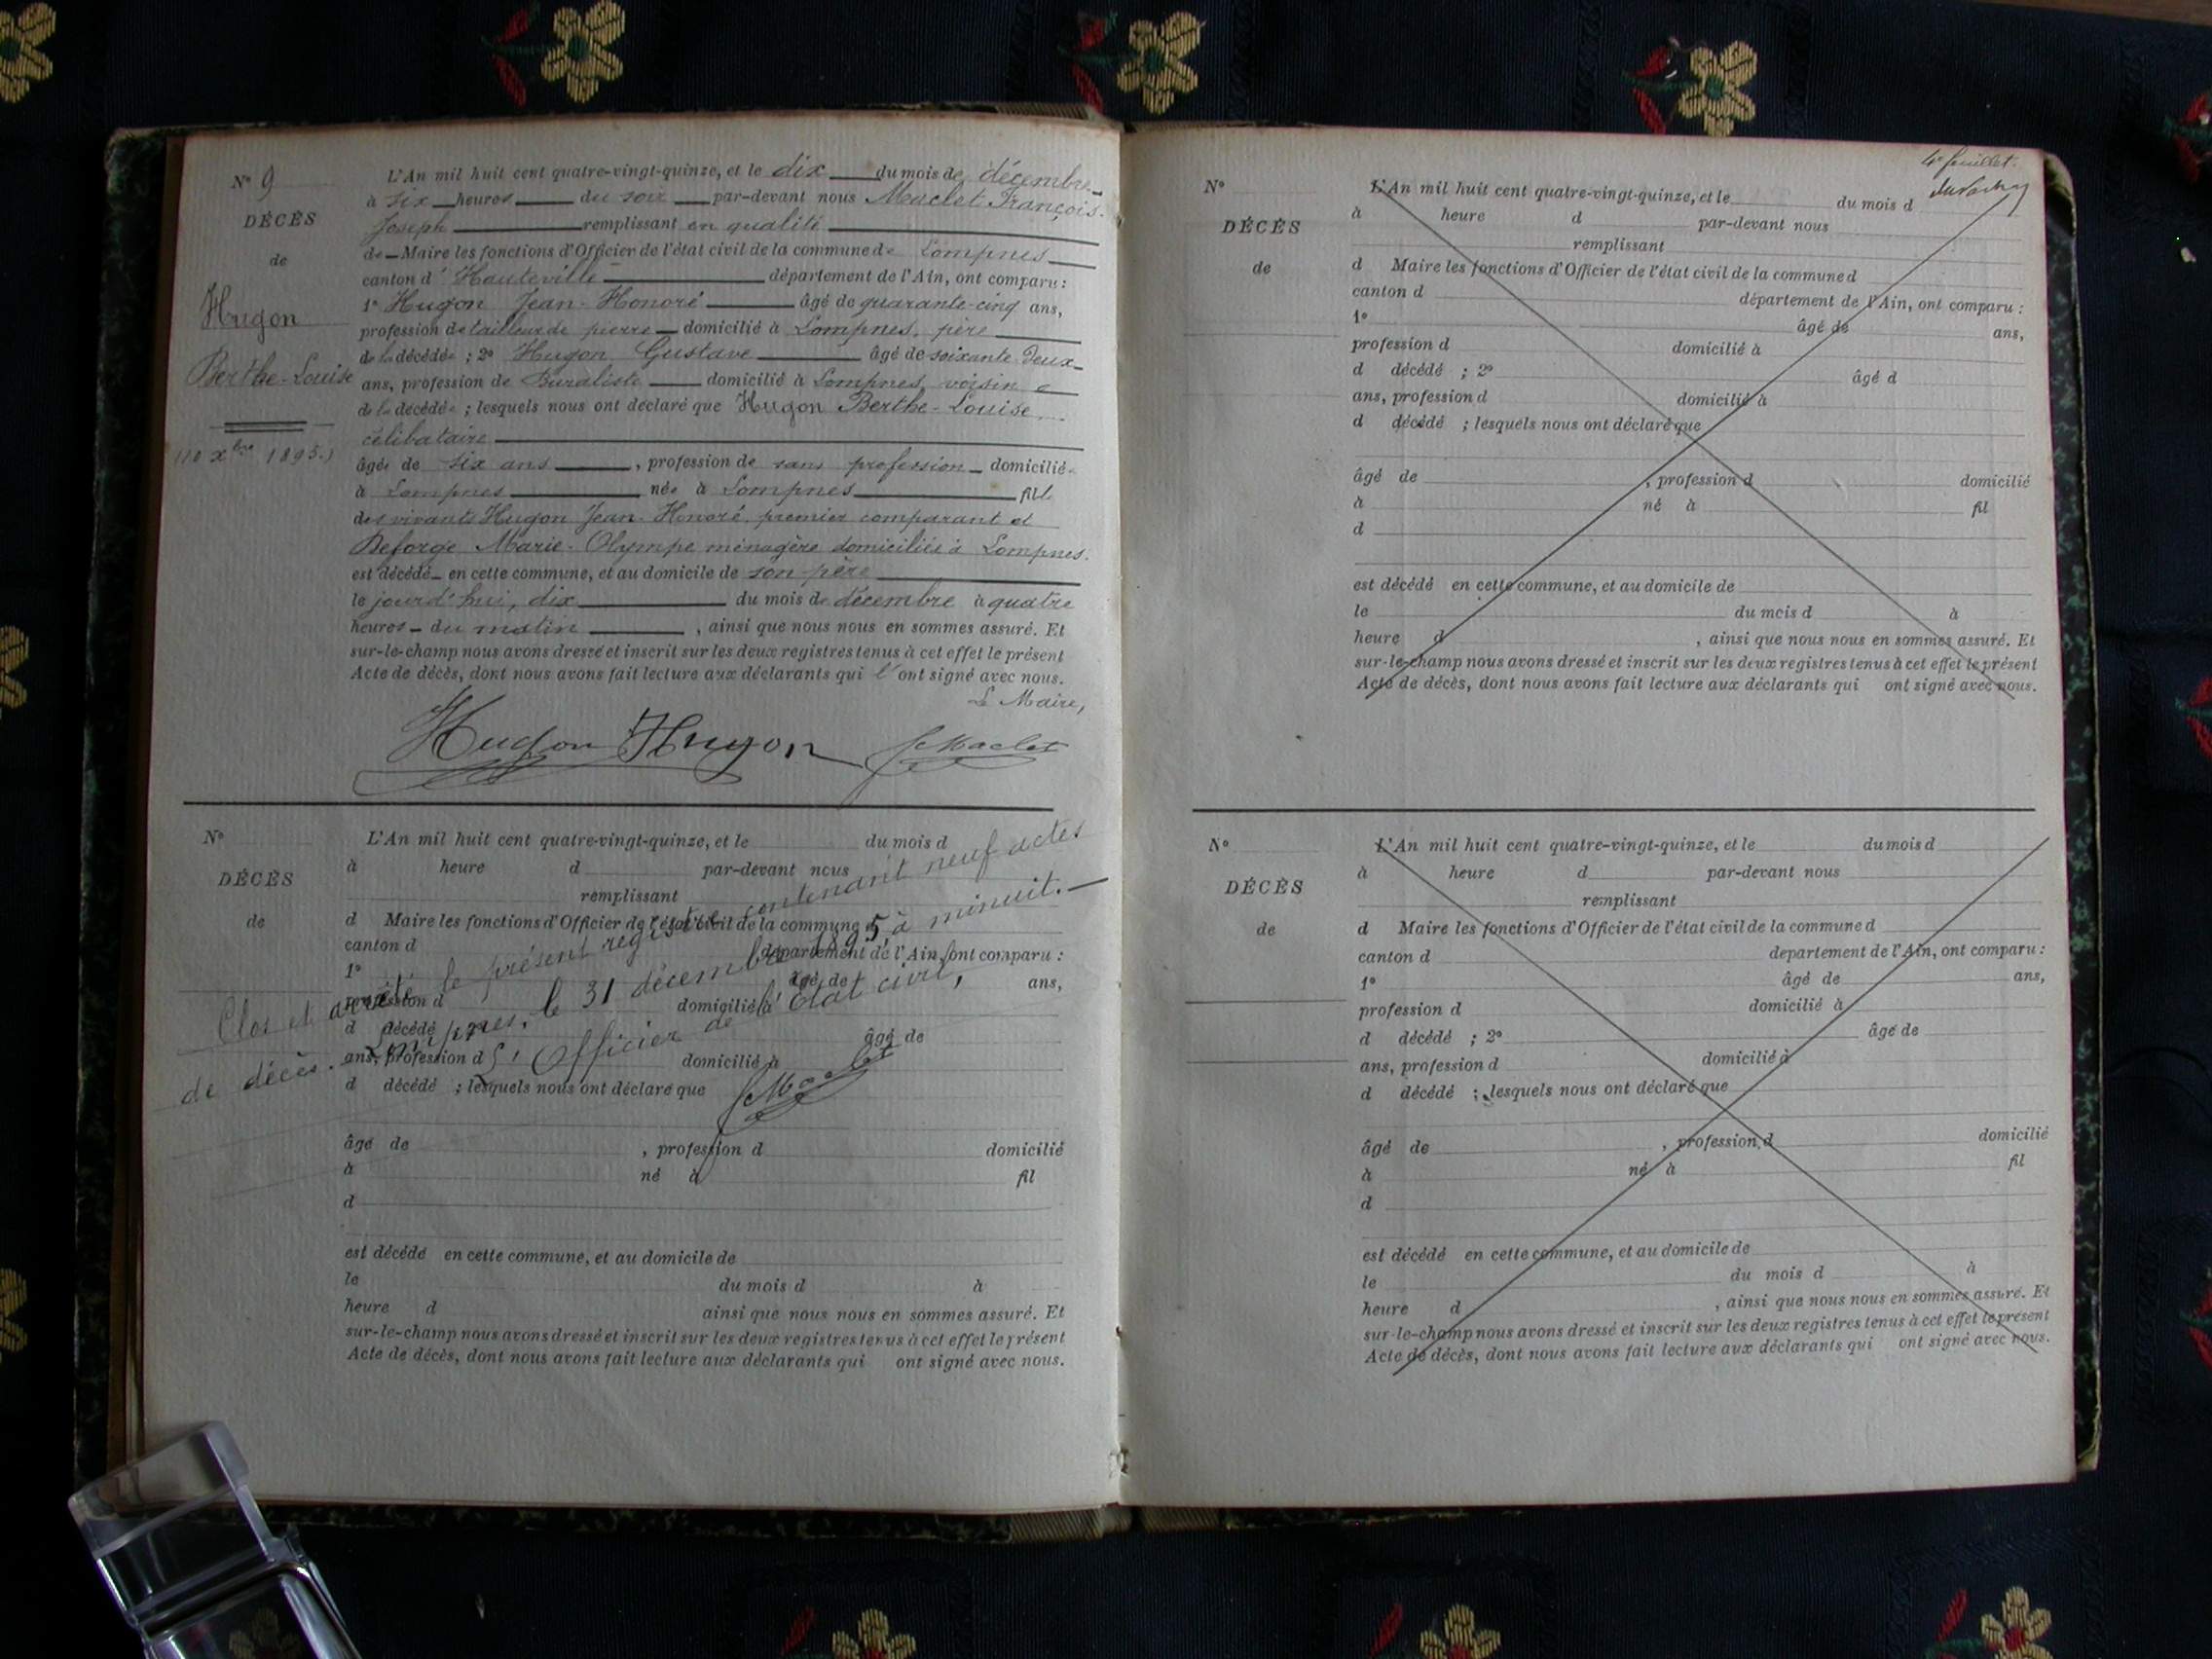 N° 9
DÉCÈS
de
Hugon
Berthe-Louise
(10 xbre 1895.)
L'An mil huit cent quatre-vingt-quinze, et le dix du mois de décembre
à six heures du soir par-devant nous Maclet François
Joseph remplissant en qualité
de Maire les fonctions d'Officier de l'état civil de la commune de Lompnes
canton d'Hauteville département de l'Ain, ont comparu :
1° Hugon Jean-Honoré âgé de quarante-cinq ans,
profession de tailleur de pierre domicilié à Lompnes, père
de la décédée ; 2° Hugon Gustave âgé de soixante-deux
ans, profession de Buraliste domicilié à Lompnes, voisin
de la décédée ; lesquels nous ont déclaré que Hugon Berthe-Louise
célibataire
âgée de six ans, profession de sans profession domiciliée
à Lompnes née à Lompnes fille
des vivants Hugon Jean-Honoré, premier comparant et
Deforge Marie-Olympe ménagère domiciliés à Lompnes.
est décédé en cette commune, et au domicile de son père
le jourd'hui, dix du mois de décembre à quatre
heures du matin, ainsi que nous nous en sommes assuré. Et
sur-le-champ nous avons dressé et inscrit sur les deux registres tenus à cet effet le présent
Acte de décès, dont nous avons fait lecture aux déclarants qui l'ont signé avec nous.
Le Maire,
Hugon Hugon Maclet
N°
DÉCÈS
de
L'An mil huit cent quatre-vingt-quinze, et le du mois d
à heure d par-devant nous
remplissant
d Maire les fonctions d'Officier de l'état civil de la commune d
canton d département de l'Ain, ont comparu :
1° âgé de ans,
profession d domicilié à
d décédé âgé de
ans, profession d domicilié à
d décédé ; lesquels nous ont déclaré que
âgé de , profession d domicilié
à né à fil
d
est décédé en cette commune, et au domicile de
le du mois d à
heure d ainsi que nous nous en sommes assuré. Et
sur-le-champ nous avons dressé et inscrit sur les deux registres tenus à cet effet le présent
Acte de décès, dont nous avons fait lecture aux déclarants qui ont signé avec nous.
Clos et arrêté le présent registre contenant neuf actes
de décès. Lompnes, le 31 décembre 1895, à minuit.
L'Officier de l'Etat civil,
Maclet
4e feuillet.
N°
DÉCÈS
de
L'An mil huit cent quatre-vingt-quinze, et le du mois d
à heure d par-devant nous
remplissant
d Maire les fonctions d'Officier de l'état civil de la commune d
canton d département de l'Ain, ont comparu :
1° âgé de ans,
profession d domicilié à
d décédé ; 2° âgé d
ans, profession d domicilié à
d décédé ; lesquels nous ont déclaré que
âgé de , profession d domicilié
à né à fil
d
est décédé en cette commune, et au domicile de
le du mois d à
heure d , ainsi que nous nous en sommes assuré. Et
sur-le-champ nous avons dressé et inscrit sur les deux registres tenus à cet effet le présent
Acte de décès, dont nous avons fait lecture aux déclarants qui ont signé avec nous.
N°
DÉCÈS
de
L'An mil huit cent quatre-vingt-quinze, et le du mois d
à heure d par-devant nous
remplissant
d Maire les fonctions d'Officier de l'état civil de la commune d
canton d departement de l'Ain, ont comparu :
1° âgé de ans,
profession d domicilié à
d décédé ; 2° âgé de
ans, profession d domicilié à
d décédé ; lesquels nous ont déclaré que
âgé de , profession d domicilié
à né à fil
d
est décédé en cette commune, et au domicile de
le du mois d à
heure d , ainsi que nous nous en sommes assuré. Et
sur-le-champ nous avons dressé et inscrit sur les deux registres tenus à cet effet le présent
Acte de décès, dont nous avons fait lecture aux déclarants qui ont signé avec nous.